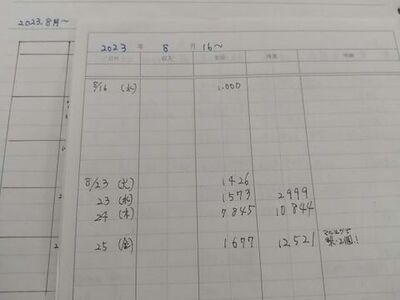 2023.8月〜
2023 年 8 月 16〜
8/16 (水) 1.000
8/23 (火) 1426
23 (水) 1573 2999
24 (木) 7845 10844
25 (金) 1677 12521